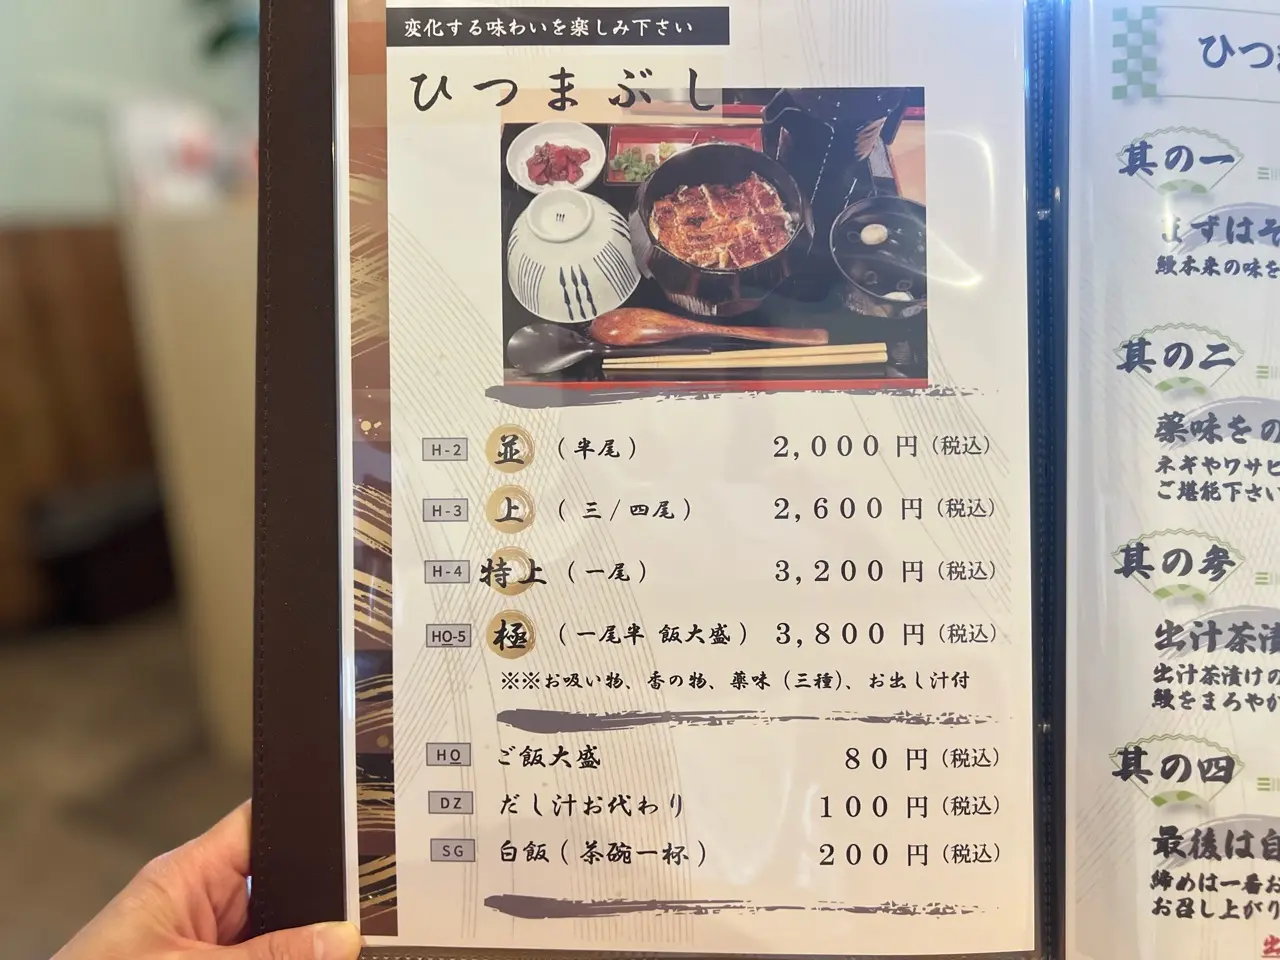 変化する味わいを楽しみ下さい
ひつまぶし
H-2 並 (半尾) 2,000円(税込)
H-3 上 (三/四尾) 2,600円(税込)
H-4 特上 (一尾) 3,200円(税込)
HO-5 極 (一尾半 飯大盛) 3,800円(税込)
※※お吸い物、香の物、薬味(三種)、お出し汁付
HO ご飯大盛 80円(税込)
DZ だし汁お代わり 100円(税込)
SG 白飯(茶碗一杯) 200円(税込)
ひつ
其の一
まずはそ
鰻本来の味を
其の二
薬味をの
ネギやワサビ
ご堪能下さい
其の参
出汁茶漬
出汁茶漬けの
鰻をまろやか
其の四
最後は自
締めは一番お
お召し上がり